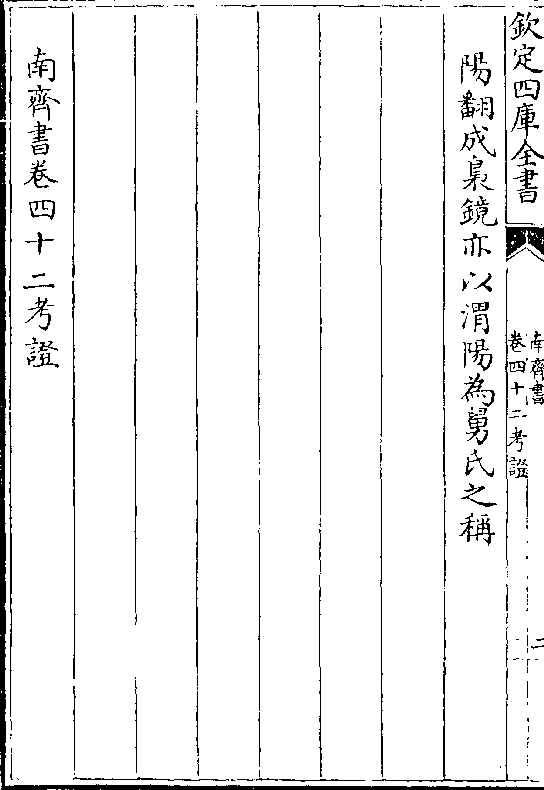 欽定四庫全書
南齊書
卷四十二考證
二
陽翻成梟鏡亦以渭陽為舅氏之稱
南齊書卷四十二考證